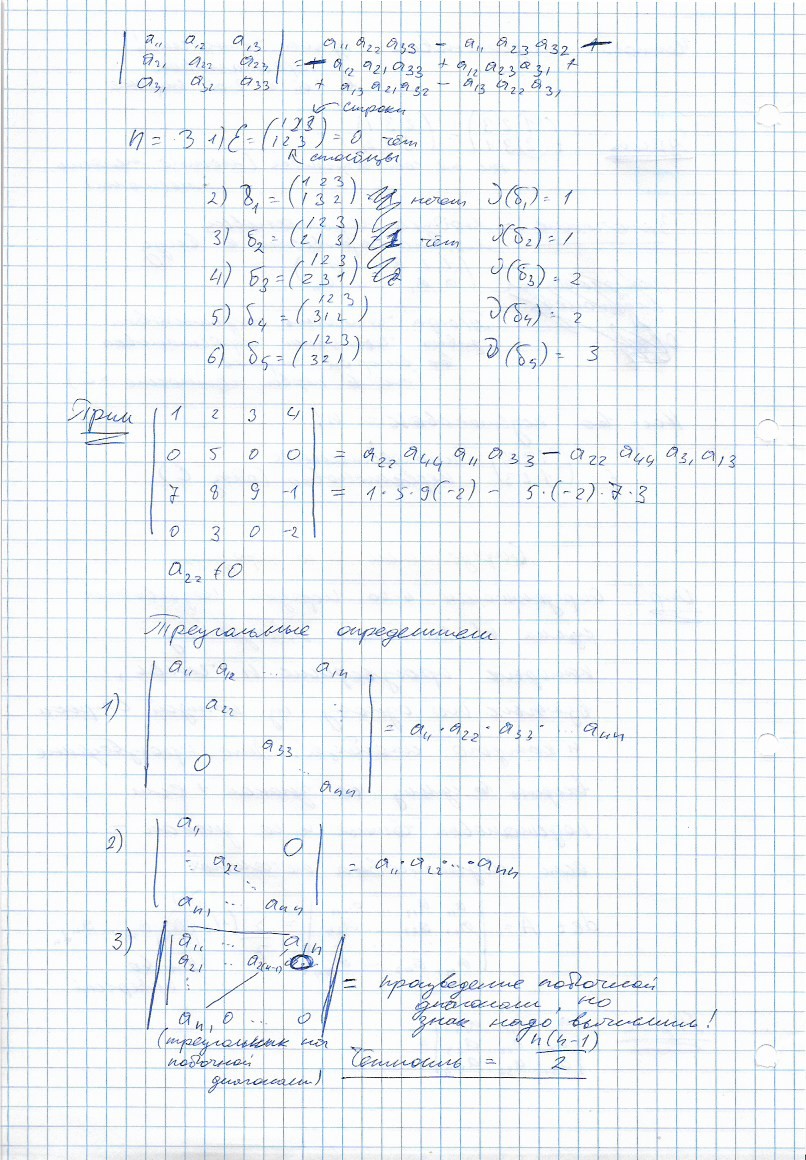 | a₁₁ a₁₂ a₁₃ | a₁₁ a₂₂ a₃₃ − a₁₁ a₂₃ a₃₂
| a₂₁ a₂₂ a₂₃ | = − a₁₂ a₂₁ a₃₃ + a₁₂ a₂₃ a₃₁ +
| a₃₁ a₃₂ a₃₃ | + a₁₃ a₂₁ a₃₂ − a₁₃ a₂₂ a₃₁
строки
n = 3 1) ℰ = (1 2 3 / 1 2 3) = 0 чёт
столбцы
2) б₁ = (1 2 3 / 1 3 2) нечет ℐ(б₁) = 1
3) б₂ = (1 2 3 / 2 1 3) чёт ℐ(б₂) = 1
4) б₃ = (1 2 3 / 2 3 1) ℐ(б₃) = 2
5) б₄ = (1 2 3 / 3 1 2) ℐ(б₄) = 2
6) б₅ = (1 2 3 / 3 2 1) ℐ(б₅) = 3
Прим | 1 2 3 4 |
| 0 5 0 0 | = a₂₂ a₄₄ a₁₁ a₃₃ − a₂₂ a₄₄ a₃₁ a₁₃
| 7 8 9 -1 | = 1·5·9(-2) − 5·(-2)·7·3
| 0 3 0 -2 |
a₂₂ ≠ 0
Треугольные определители
| a₁₁ a₁₂ ... a₁ₙ |
1) | a₂₂ ⋮ | = a₁₁ · a₂₂ · a₃₃ · ... aₙₙ
| 0 a₃₃ ... |
| aₙₙ |
2) | a₁₁ 0 |
| ⋮ a₂₂ ... | = a₁₁ · a₂₂ · ... · aₙₙ
| aₙ₁ ... aₙₙ |
3) | a₁₁ ... a₁ₙ |
| a₂₁ ... a₂₍ₙ₋₁₎ |
| ⋮ | = произведение побочной
диагонали, но
| aₙ₁ 0 ... 0 | знак надо вычислить!
(треугольник на
побочной
диагонали)
Четность = n(n-1) / 2